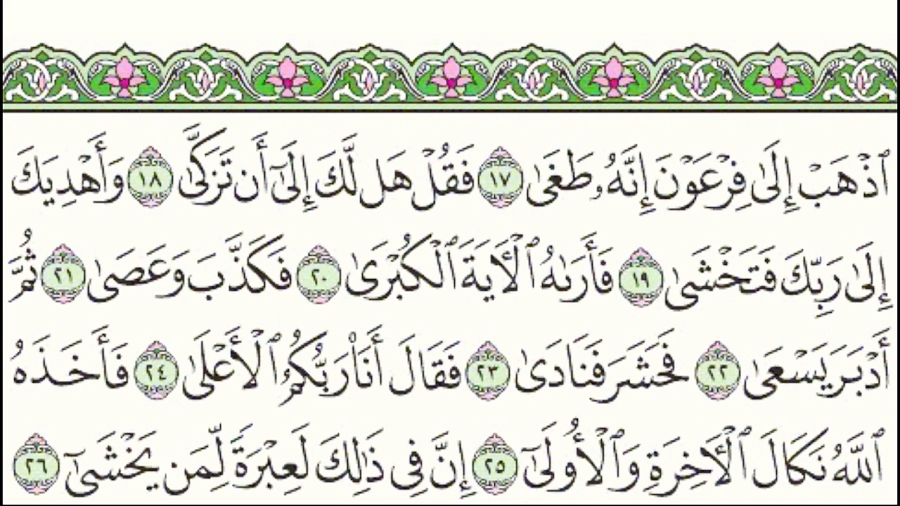 ٱذْهَبْ إِلَىٰ فِرْعَوْنَ إِنَّهُۥ طَغَىٰ ١٧ فَقُلْ هَل لَّكَ إِلَىٰٓ أَن تَزَكَّىٰ ١٨ وَأَهْدِيَكَ
إِلَىٰ رَبِّكَ فَتَخْشَىٰ ١٩ فَأَرَىٰهُ ٱلْأٓيَةَ ٱلْكُبْرَىٰ ٢٠ فَكَذَّبَ وَعَصَىٰ ٢١ ثُمَّ
أَدْبَرَ يَسْعَىٰ ٢٢ فَحَشَرَ فَنَادَىٰ ٢٣ فَقَالَ أَنَا۠ رَبُّكُمُ ٱلْأَعْلَىٰ ٢٤ فَأَخَذَهُ
ٱللَّهُ نَكَالَ ٱلْأٓخِرَةِ وَٱلْأُولَىٰٓ ٢٥ إِنَّ فِى ذَٰلِكَ لَعِبْرَةً لِّمَن يَخْشَىٰٓ ٢٦